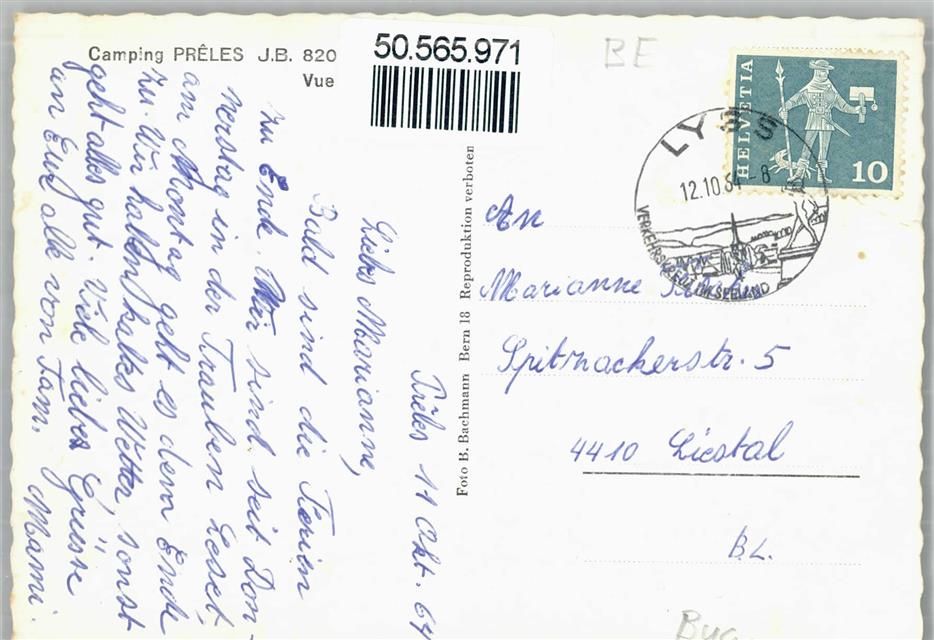 Camping PRÊLES J.B. 820
Vue
50.565.971
BE
HELVETIA
10
LYSS
12.10.64 - 8
VERKEHRSKREUZ IM SEELAND
Foto B. Bachmann Bern 18 Reproduktion verboten
Prêles 11 Okt. 64
Liebe Marianne,
Bald sind die Ferien
zu Ende. Wir sind seit Don
nerstag in der Trauben Leset,
am Montag geht es dem Ende
zu. Wir haben kaltes Wetter, sonst
geht alles gut. Viele liebe Grüsse
an Euch alle von Fam. Mami.
An
Marianne
Spitzackerstr. 5
4410 Liestal
BL.